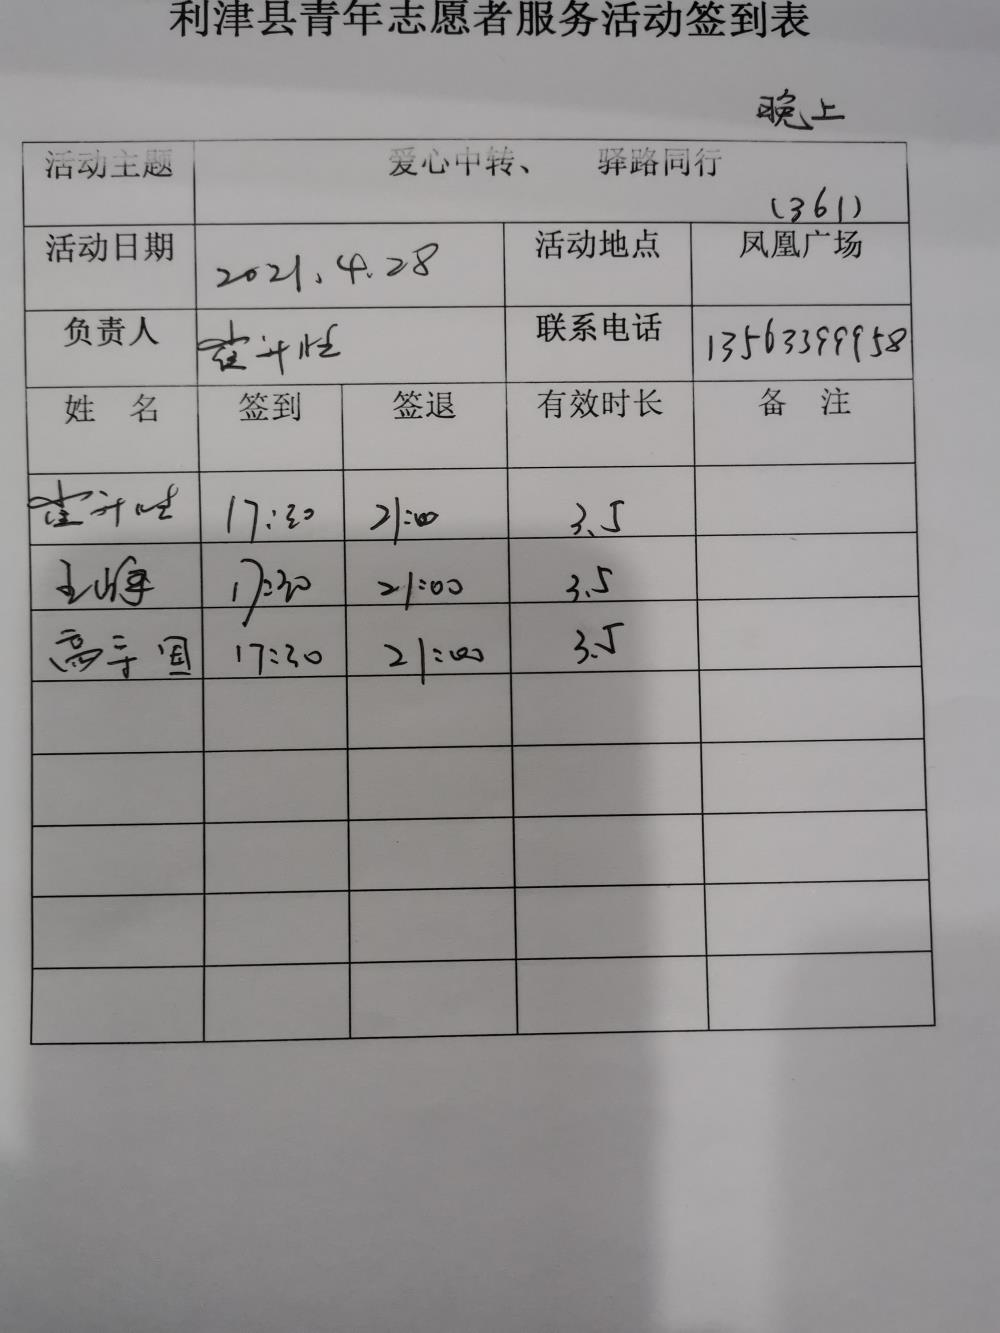 利津县青年志愿者服务活动签到表
晚上
活动主题 爱心中转、 驿路同行
(361)
活动日期 2021.4.28 活动地点 凤凰广场
负责人 联系电话 13563399958
姓 名 签到 签退 有效时长 备 注
17:30 21:00 3.5
王峰 17:30 21:00 3.5
高守国 17:30 21:00 3.5